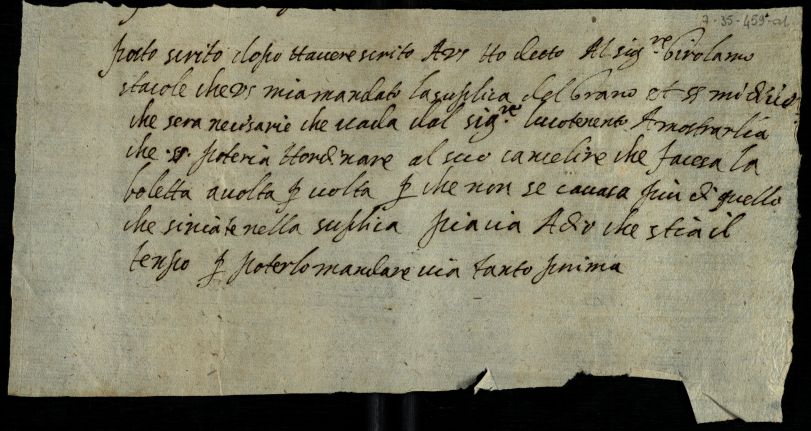 7-35-459-al
posto scrito dopo Havere scrito A VS Ho decto Al sig.re Girolamo
stacole che VS mia mandato la suplica del Grano et mi dicie
che sera necisario che vada dal sig.re luvotenente A mostrarlia
che poteria Hordinare al suo cancelire che facesa la
boletta a volta p volta p che non se cavasa piu di quello
che si nella suplica piacia A dio che stia il
tenpo p poterlo mandare via tanto prima